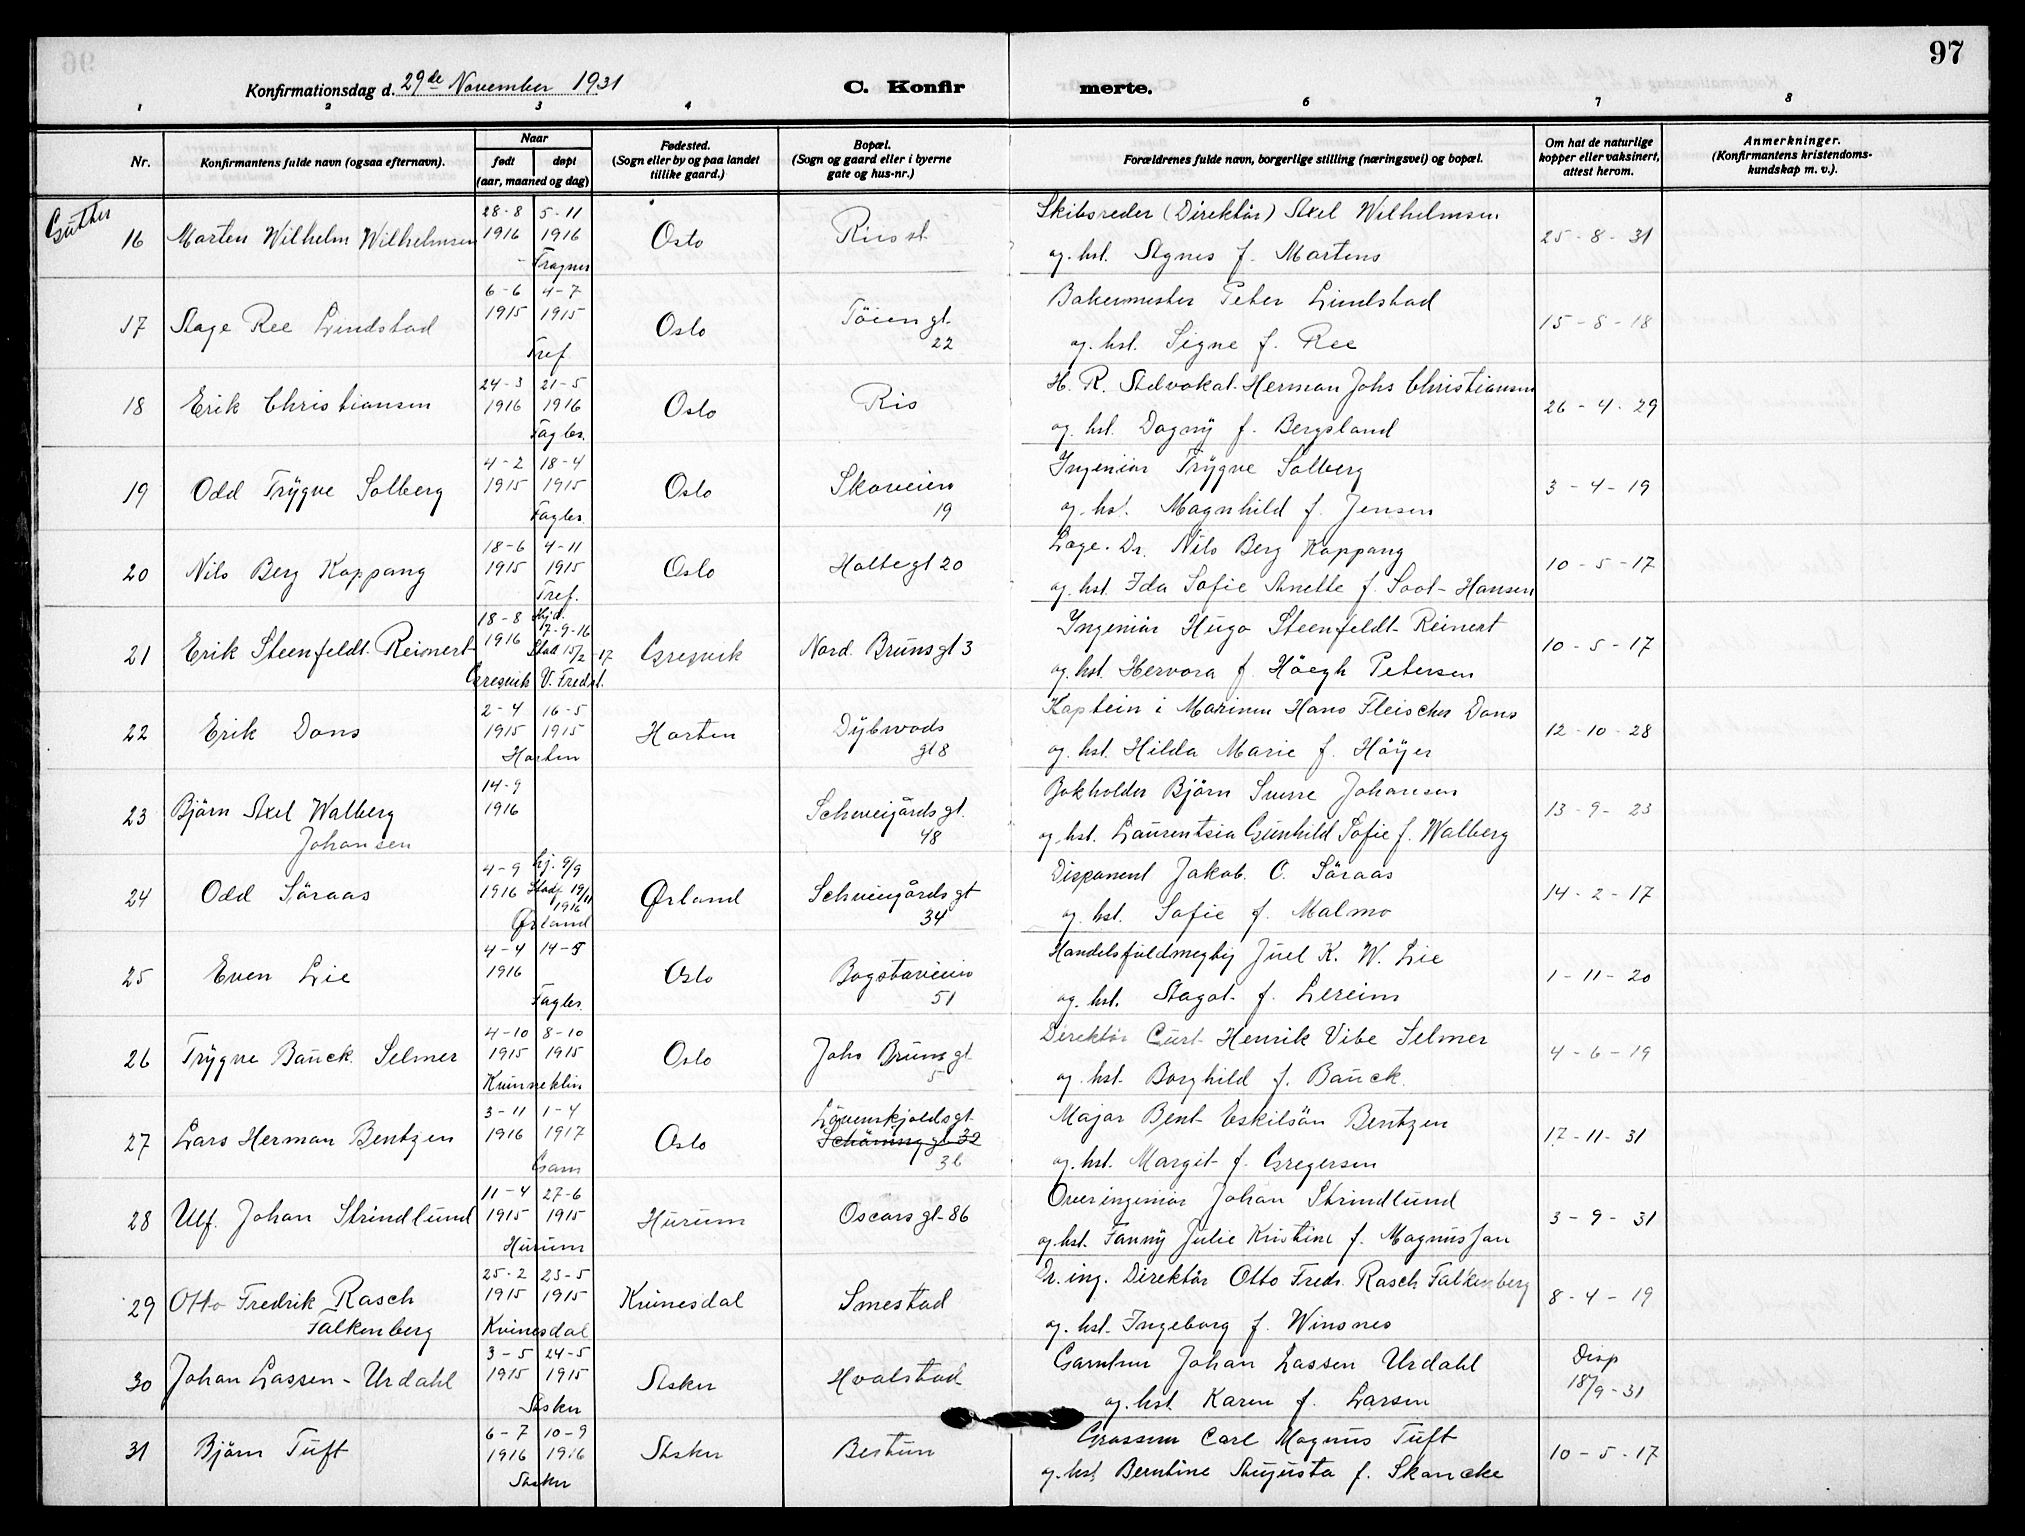 97
Konfirmationsdag d. 29de November 1931
C. Konfirmerte.
1 2 3 4 6 7 8
Nr.
Konfirmantens fulde navn (ogsaa efternavn).
Naar
født døpt
(aar, maaned og dag)
Fødested.
(Sogn eller by og paa landet
tillike gaard.)
Bopæl.
(Sogn og gaard eller i byerne
gate og hus-nr.)
Forældrenes fulde navn, borgerlige stilling (næringsvei) og bopæl.
Om hat de naturlige
kopper eller vaksinert,
attest herom.
Anmerkninger.
(Konfirmantens kristendoms-
kundskap m. v.).
Gutter
16 Morten Wilhelm Wilhelmsen 28-8 1916 5-11 1916 Fragner Oslo
Skibsreder (Direktör) Axel Wilhelmsen
og hst. Agnes f. Martens
25-8-31
17 Aage Ree Lindstad 6-6 1915 4-7 1915 Tref Oslo Töiengt. 22
Bakermester Peter Lindstad
og hst. Signe f. Ree
15-8-18
18 Erik Christiansen 24-3 1916 21-5 1916 Fagler. Oslo Ris
H. R. Advokat Herman Johs Christiansen
og hst. Dagny f. Bergsland
26-4-29
19 Odd Trygve Solberg 4-2 1915 18-4 1915 Fagler. Oslo Skoveien 19
Ingeniör Trygve Solberg
og hst. Magnhild f. Jensen
3-4-19
20 Nils Berg Kappang 18-6 1915 4-11 1915 Tref. Oslo Holtegt 20
Læge. Dr. Nils Berg Kappang
og hst. Ida Sofie Anette f. Soot-Hansen
10-5-17
21 Erik Steenfeldt-Reinert 18-8 1916 Hjd. 17-9-16 Stad 15/2 17 Gresvik V. Fredr. Gresvik Nord. Brunsgt 3
Ingeniör Hugo Steenfeldt-Reinert
og hst. Hervora f. Höegh Petersen
10-5-17
22 Erik Dons 2-4 1915 16-5 1915 Horten Horten Dybwads gt 8
Kaptein i Marinen Hans Fleischer Dons
og hst. Hilda Marie f. Höyer
12-10-28
23 Björn Axel Walberg Johansen 14-9 1916 Schweigårdsgt. 48
Bokholder Björn Sverre Johansen
og hst. Laurentsia Gunhild Sofie f. Walberg
13-9-23
24 Odd Söraas 4-9 1916 hj. 9/9 Stadf. 19/11 1916 Ørland Ørland Schweigårdsgt 34
Disponent Jakob O. Söraas
og hst. Sofie f. Malmo
14-2-17
25 Even Lie 4-4 1916 14-5 Fagler. Oslo Bogstadveien 51
Handelsfuldmegtig Juel K. W. Lie
og hst. Aagot f. Lereim
1-11-20
26 Trygve Bauck Selmer 4-10 1915 8-10 1915 Kvinneklin Oslo Johs Brunsgt 5
Direktör Curt Henrik Vibe Selmer
og hst. Borghild f. Bauck.
4-6-19
27 Lars Herman Bentzen 3-11 1916 1-4 1917 Gam Oslo Lövenskjoldsgt. Schöning gt 32 3b
Major Bent Eskilsön Bentzen
og hst. Margit f. Gregersen
17-11-31
28 Ulf. Johan Strindlund 11-4 1915 27-6 1915 Hurum Hurum Oscarsgt-86
Overingeniör Johan Strindlund
og hst. Fanny Julie Kristine f. Magnusjan
3-9-31
29 Otto Fredrik Rasch Falkenberg 25-2 1915 23-5 1915 Kvinesdal Kvinesdal Smestad
Dr. ing. Direktör Otto Fredr. Rasch Falkenberg
og hst. Ingeborg f. Winsnes
8-4-19
30 Johan Lassen-Urdahl 3-5 1915 24-5 1915 Asker Asker Hvalstad
Gartner Johan Lassen Urdahl
og hst. Karen f. Larsen
Disp 18/9-31
31 Björn Tuft 6-7 1916 10-9 1916 Asker Asker Bestun
Grosserer Carl Magnus Tuft
og hst Berntine Augusta f. Skancke
10-5-17